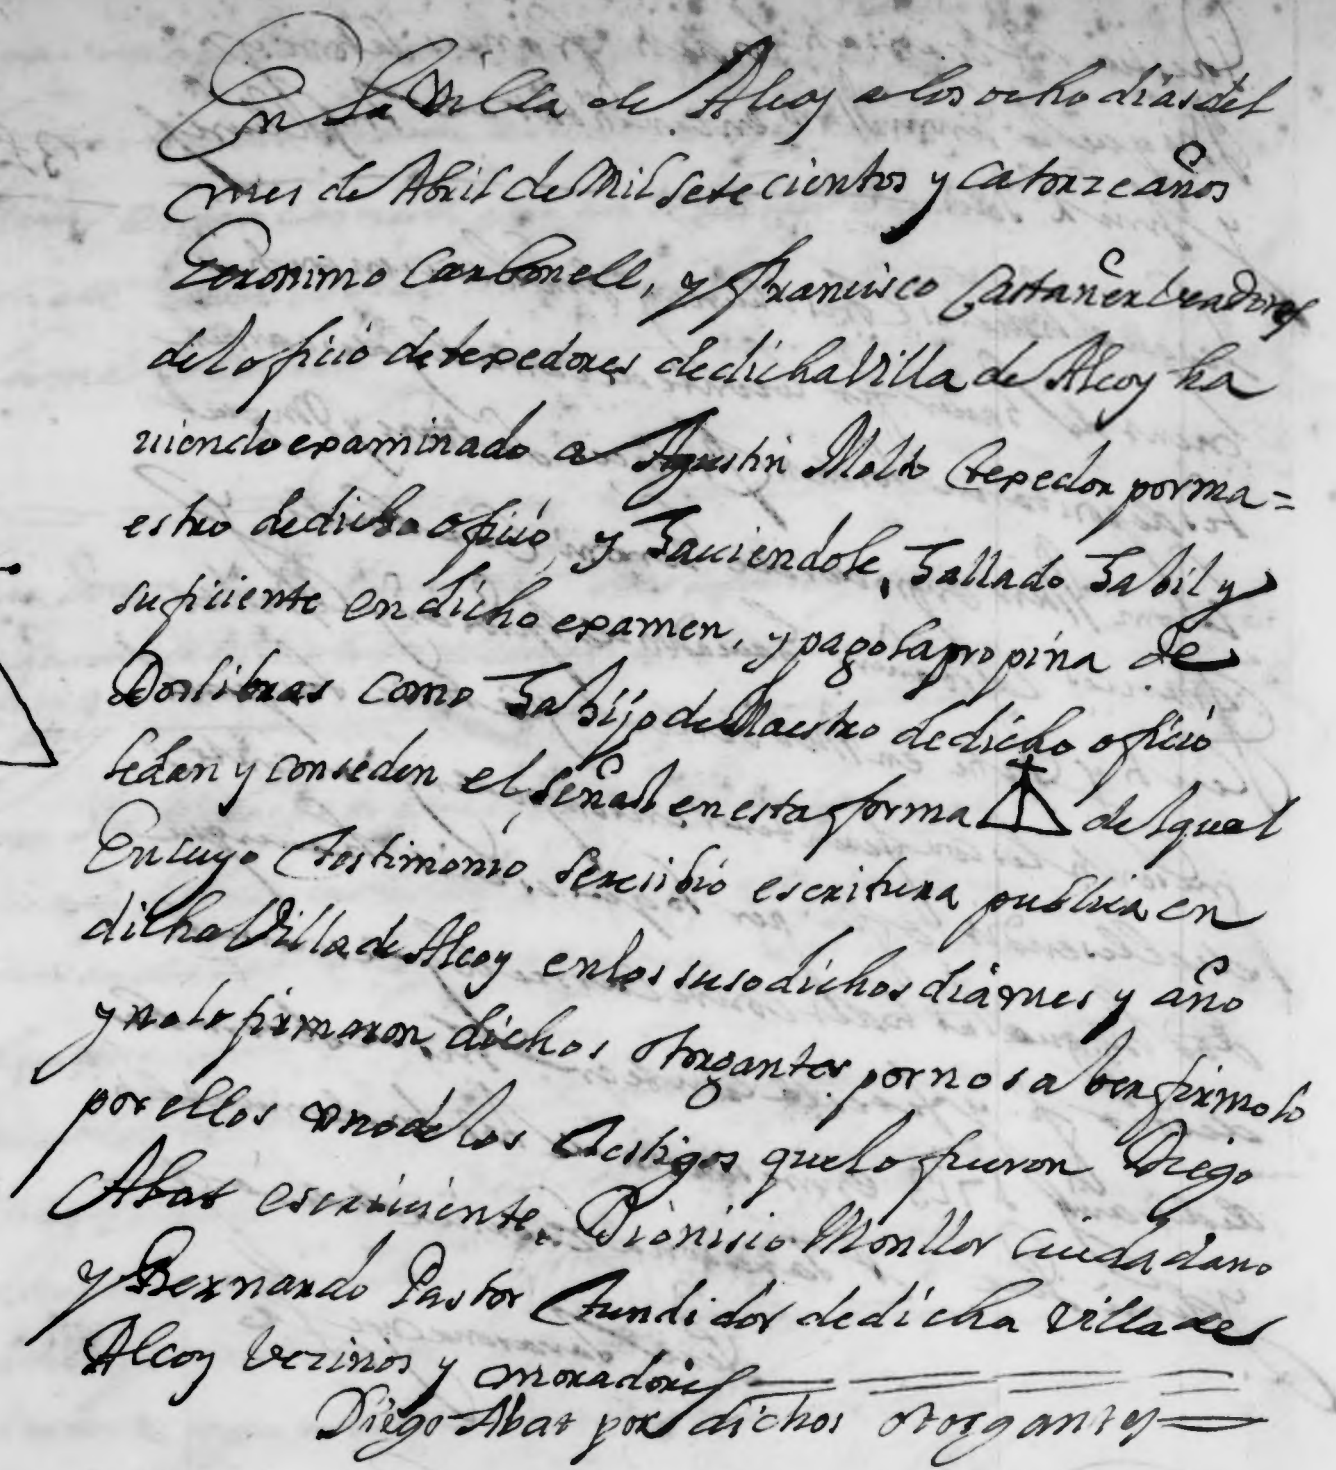 En la Villa de Alcoy a los ocho dias del
mes de Abril de Mil setecientos y catorze años
Geronimo Carbonell, y Francisco Castañer veadores
del oficio de texedores de dicha Villa de Alcoy ha
viendo examinado a Agustin Molto texedor por ma=
estro de dicho oficio, y haviendole hallado habil y
suficiente en dicho examen, y pago la propina de
Dos libras como ha hijo de Maestro de dicho oficio
le dan y conseden el señal en esta forma del qual
En cuyo testimonio se resibio escritura publica en
dicha Villa de Alcoy en los susodichos dia mes y año
y no lo firmaron dichos otorgantes por no saber firmolo
por ellos uno de los testigos que lo fueron Diego
Abat escriviente, Dionisio Monllor Ciudadano
y Bernardo Pastor tundidor de dicha Villa de
Alcoy vezinos y moradores
Diego Abat por dichos otorgantes